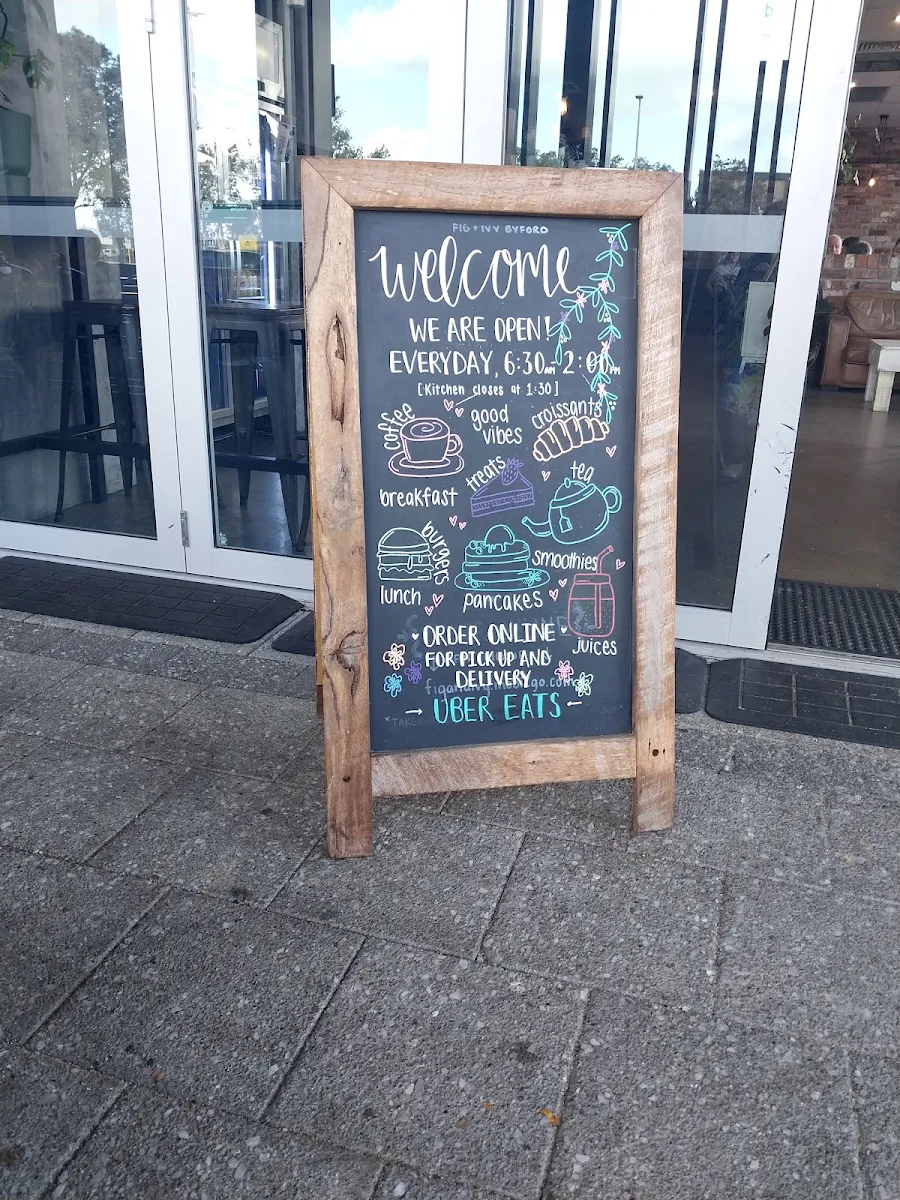 FIG + IVY BYFORD
welcome
WE ARE OPEN!
EVERYDAY, 6:30AM-2:00PM
[Kitchen closes at 1:30]
coffee
good
vibes
croissants
treats
tea
breakfast
burgers
smoothies
lunch
pancakes
juices
ORDER ONLINE
FOR PICK UP AND
DELIVERY
→ UBER EATS ←